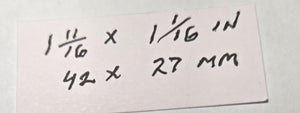 1 11/16 x 1 1/16 IN
42 x 27 MM